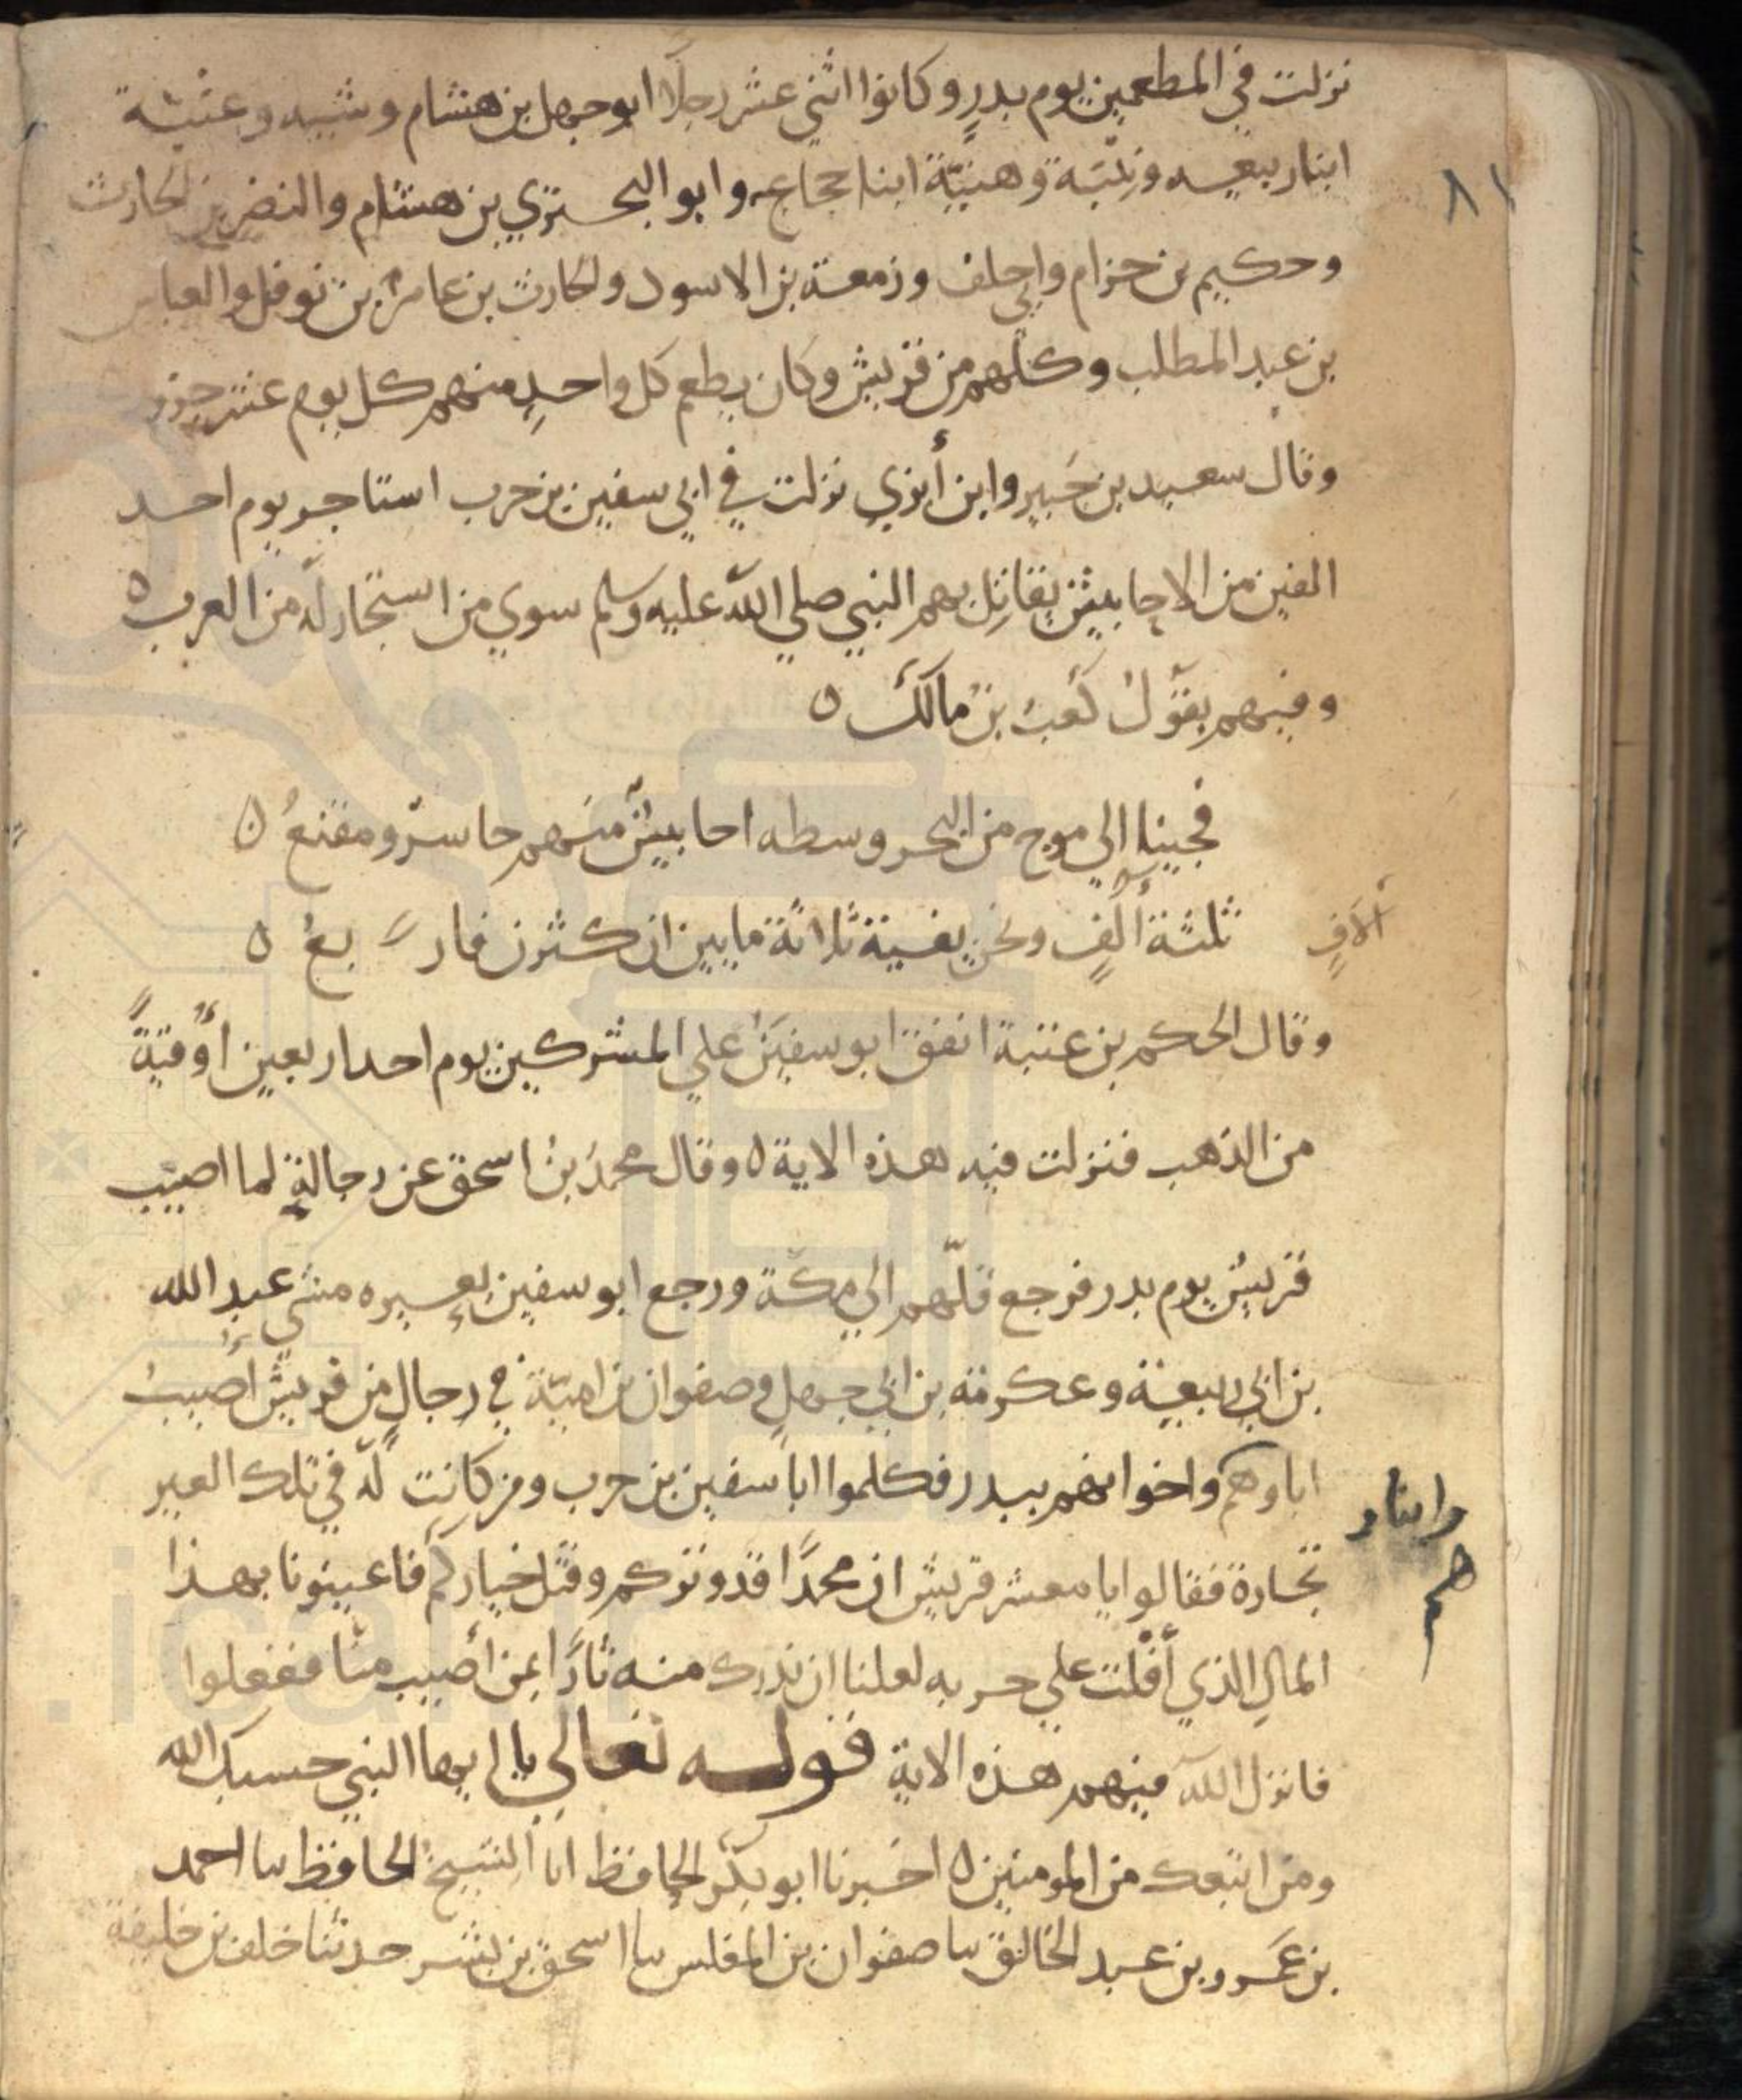 نزلت في المطعمين يوم بدرٍ وكانوا اثني عشر رجلًا ابو جهل بن هشام وشيبه وعتبة
٨١
ابنا ربيعه ونبيّة ومنبّة ابنا حجاج وابو البحتري بن هشام والنضر بن الحارث
وحكيم بن حزام وابي خلف وزمعة بن الاسود والحارث بن عامر بن نوفل والعباس
بن عبد المطلب وكلهم من قريش وكان يطعم كل واحدٍ منهم كل يوم عشر جزر
وقال سعيد بن جُبير وابن أبزي نزلت في ابي سفين بن حرب استاجر يوم احد
الفين من الاحابيش يقاتِل بهم النبي صلي الله عليه وسلم سوي من استجار له من العرب ٥
وفيهم يقول كعبُ بن مالك ٥
فجينا الي موج من البحر وسطه احابيش منهم حاسرٌ ومقنعُ ٥
ثلثة ألفٍ ونحن بقية ثلاثة مايين ان كثرن فاربعُ ٥
آلافٍ
وقال الحكم بن عتبة انفق ابو سفين علي المشركين يوم احد اربعين أوقيةً
من الذهب فنزلت فيه هذه الاية ٥ وقال محمدُ بنُ اسحق عن رجالةٍ لما اصيب
قريش يوم بدر فرجع فلّهم الي مكة ورجع ابو سفين بعيره مشي عبد الله
بن ابي ربيعة وعكرمة بن ابي جهلٍ وصفوان بن اميّة في رجالٍ من قريش أصيبُ
اباوهم واخوانهم ببدر فكلموا ابا سفين بن حرب ومن كانت له في تلك العير
وابناو
هم
تجارة فقالوا يا معشر قريش ان محمدًا قد وتركم وقتل خياركم فاعينونا بهذا
المالِ الذي أفلت علي حربه لعلنا ان ندرك منه ثارًا بمن أصيب منا ففعلوا
فانزل الله فيهم هذه الاية قوله تعالي يا ايها النبي حسبك الله
ومن اتبعك من المومنين ٥ اخبرنا ابو بكر الحافظ انا الشيخ الحافظ سا احمد
بن عمرو بن عبد الخالق سا صفوان بن المغلس سا اسحق بن بشر حدثنا خلف بن خليفة